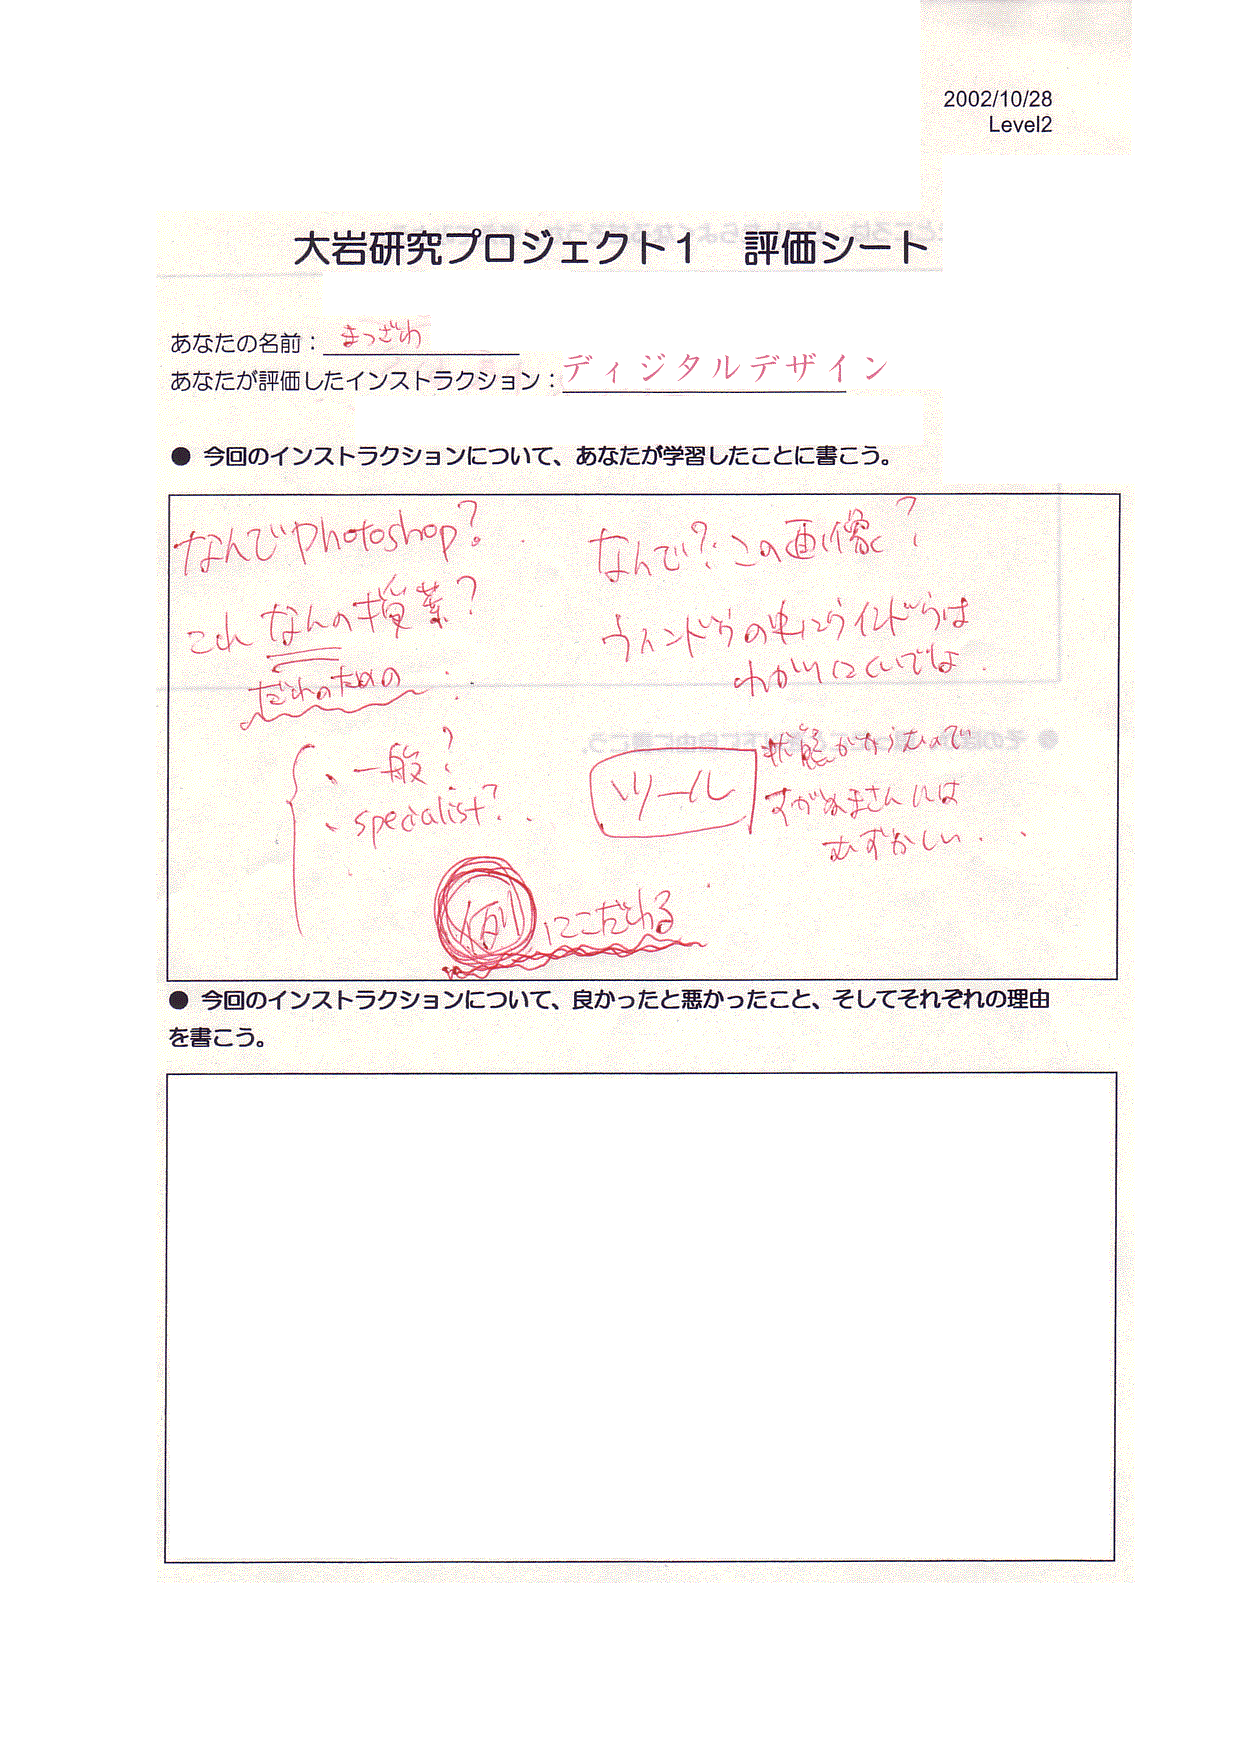 2002/10/28
Level2
大岩研究プロジェクト1　評価シート
あなたの名前：まつざわ
あなたが評価したインストラクション：ディジタルデザイン
● 今回のインストラクションについて、あなたが学習したことに書こう。
なんでPhotoshop?
これなんの授業?
だれのための
、一般?
、specialist?
例にこだわる
なんで?この画像?
ウィンドウの中にウィンドウは
わかりにくいでは
ツール
状態がかわるので
すがぬまさんには
むずかしい
● 今回のインストラクションについて、良かったと悪かったこと、そしてそれぞれの理由
を書こう。